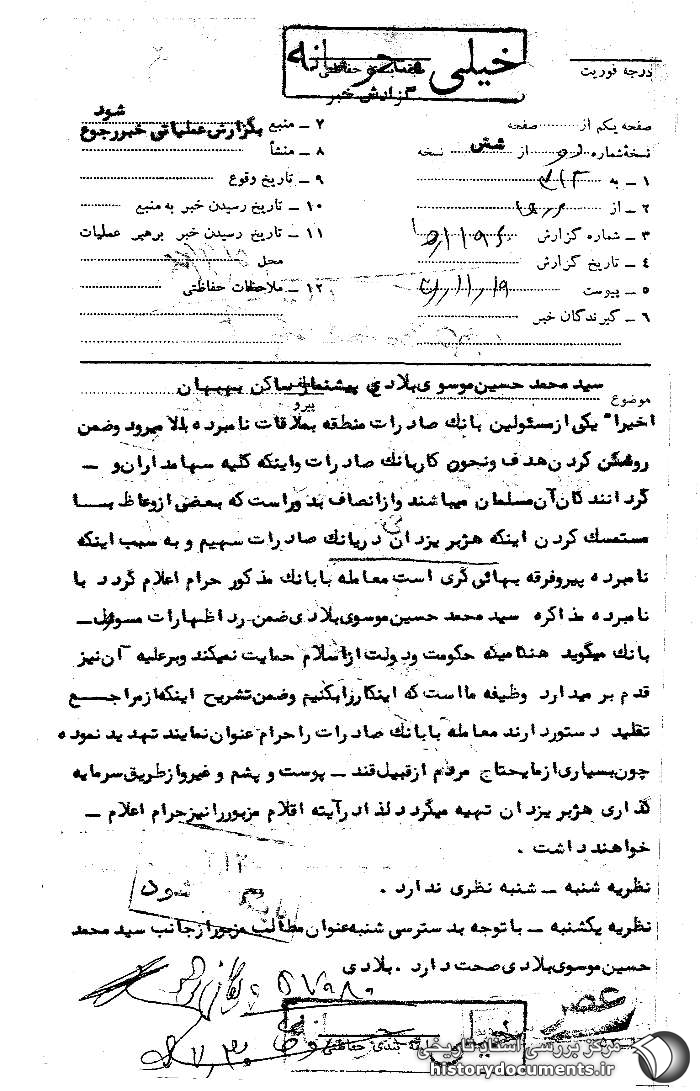 خیلی محرمانه
طبقه‌بندی حفاظتی
گزارش خبر
درجه فوریت
صفحه یکم از صفحه
نسخه شماره از شش نسخه
۱ ـ به ۳۱۲
۲ ـ از
۳ ـ شماره گزارش
۴ ـ تاریخ گزارش
۵ ـ پیوست
۶ ـ گیرندگان خبر
۷ ـ منبع بگزارش عملیاتی خبر رجوع شود
۸ ـ منشأ
۹ ـ تاریخ وقوع
۱۰ ـ تاریخ رسیدن خبر به منبع
۱۱ ـ تاریخ رسیدن خبر برهبر عملیات
محل
۱۲ ـ ملاحظات حفاظتی
موضوع سید محمد حسین موسوی بلادی پیشنماز ساکن بهبهان
پیرو
اخیرا" یکی از مسئولین بانک صادرات منطقه بملاقات نامبرده بالا میرود وضمن
روشن کردن هدف ونحوه کاربانک صادرات واینکه کلیه سهامداران و ـ
گردانندگان آن مسلمان میباشند وازانصاف بدوراست که بعضی ازوعاظ بـا
مستمسک کردن اینکه هژبر یزدانی دربانک صادرات سهیم و به سبب اینکه
نامبرده پیروفرقه بهائی گری است معامله بابانک مذکور حرام اعلام گردد با
نامبرده مذاکره سید محمد حسین موسوی بلادی ضمن رد اظهارات مسئول ـ
بانک میگوید هنگامیکه حکومت ودولت ازاسلام حمایت نمیکند وبرعلیه آن نیز
قدم بر میدارد وظیفه مااست که اینکاررابکنیم وضمن تشریح اینکه ازمراجـع
تقلید دستوردارند معامله بابانک صادرات را حرام عنوان نمایند تهدید نموده
چون بسیاری ازمایحتاج مردم ازقبیل قند ـ پوست و پشم و غیره ازطریق سرمایه
گذاری هژبر یزدانی تهیه میگردد لذا درآیته اقلام مزبوررانیزحرام اعلام ـ
خواهند داشت .
۱۲
نظریه شنبه ـ شنبه نظری ندارد .
شود
نظریه یکشنبه ـ باتوجه بدسترسی شنبه عنوان مطالب مزبورازجانب سید محمد
حسین موسوی بلادی صحت دارد . بلادی
عصر
خیلی محرمانه
طبقه بندی حفاظتی
مرکز بررسی اسناد تاریخی
historydocuments.ir